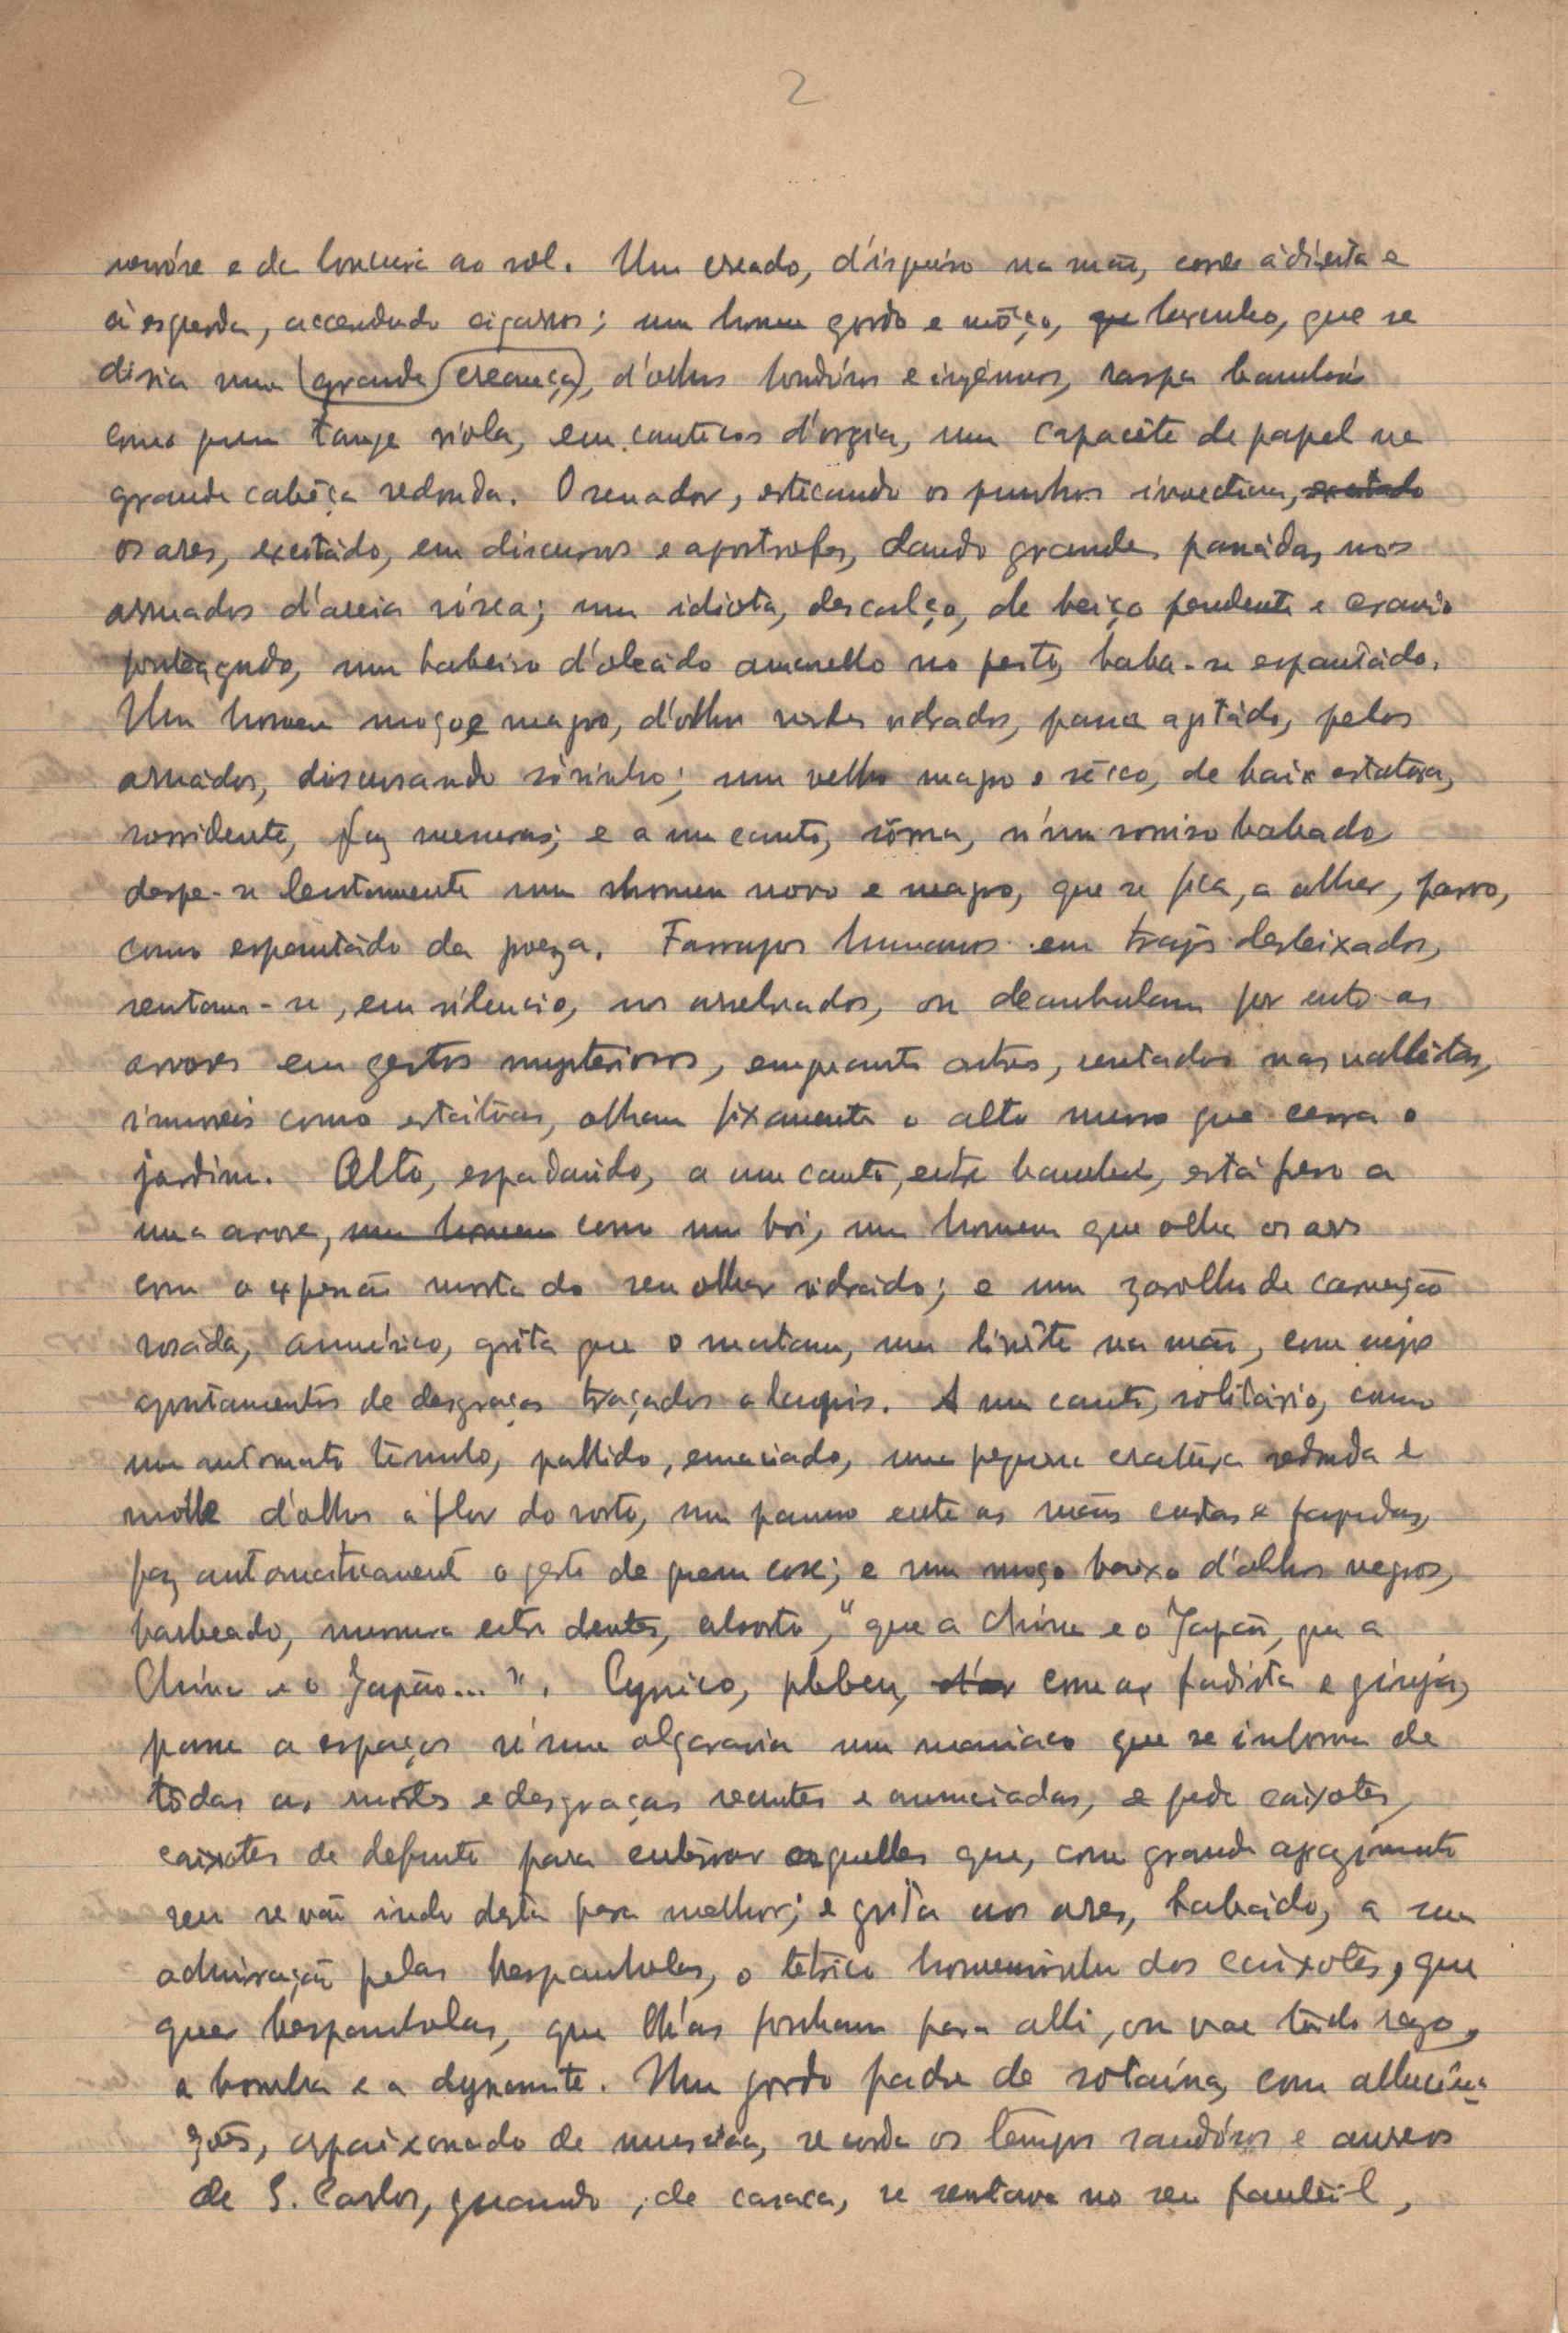 2
nevróse e da loucura ao sol. Um creado, d'isqueiro na mão, corre á direita e
á esquerda, accendendo cigarros; um homem gordo e môço, que lourinho, que se
diria uma (grande creança), d'olhos bondósos e ingénuos, raspa bandós
como quem tange viola, em canticos d'orgia, um capacête de papel na
grande cabêça redonda. O senador, esticando os punhos invectiva, exaltado
os ares, excitádo, em discursos e apostrofes, dando grandes passádas nos
arruados d'areia rósea; um idiota, descalço, de beiço pendente e craneo
ponteagudo, um babeiro d'oleádo amarello no peito, baba-se espantádo.
Um homem moço e magro, d'olhos verdes vidrados, passa agitádo, pelos
arruádos, discursando sósinho; um velho magro e sêcco, de baixa estatura,
sorridente, faz mesuras; e a um canto, sôrna, n'um sorriso babado
despe-se lentamente um homem novo e magro, que se fica, a olhar, parvo,
como espantádo da proeza. Farrapos humanos em trajos desleixados,
sentam-se, em silencio, nos arrelvados, ou deambulam por entre as
arvores em gestos mysteriosos, emquanto outros, sentados nas vallêtas,
imoveis como estátuas, olham fixamente o alto muro que cerra o
jardim. Alto, espadaúdo, a um canto, entre bambus, está preso a
uma arvore, um homem como um boi, um homem que olha os ares
com a expressão morta do seu olhar vidrádo; e um zarolho de carnação
rosáda, anmérico, grita que o matam, um livrête na mão, com
apontamentos de desgraças traçados a lapis. A um canto, solitário, como
um automato tímido, pallido, emaciado, uma pequena creatura redonda e
molle d'olhos á flor do rosto, um panno entre as mãos curtas e papudas,
faz automaticamente o gesto de quem cose; e um moço baixo d'olhos negros,
barbeado, murmura entre dentes, absorto, "que a China e o Japão, que a
China e o Japão...". Cynico, plebeu, d'ar com ar fadista e gingão,
passa a espaços n'uma algaravia um maniaco que se informa de
tôdas as mortes e desgraças recentes e anunciadas, e pede caixotes,
caixotes de defunto para enterrar aquelles que, com grande aprazimento
seu se vão indo desta para melhor; e grita aos ares, babádo, a sua
admiração pelas hespanholas, o tetrico homemsinho dos caixotes, que
quer hespanholas, que lh'as ponham para alli, ou vae tudo raso,
a bomba e a dynamite. Um gordo padre de sotaina, com allucina-
ções, apaixonado de musica, recorda os tempos saudósos e aureos
de S. Carlos, quando, de casaca, se sentava no seu fauteuil,